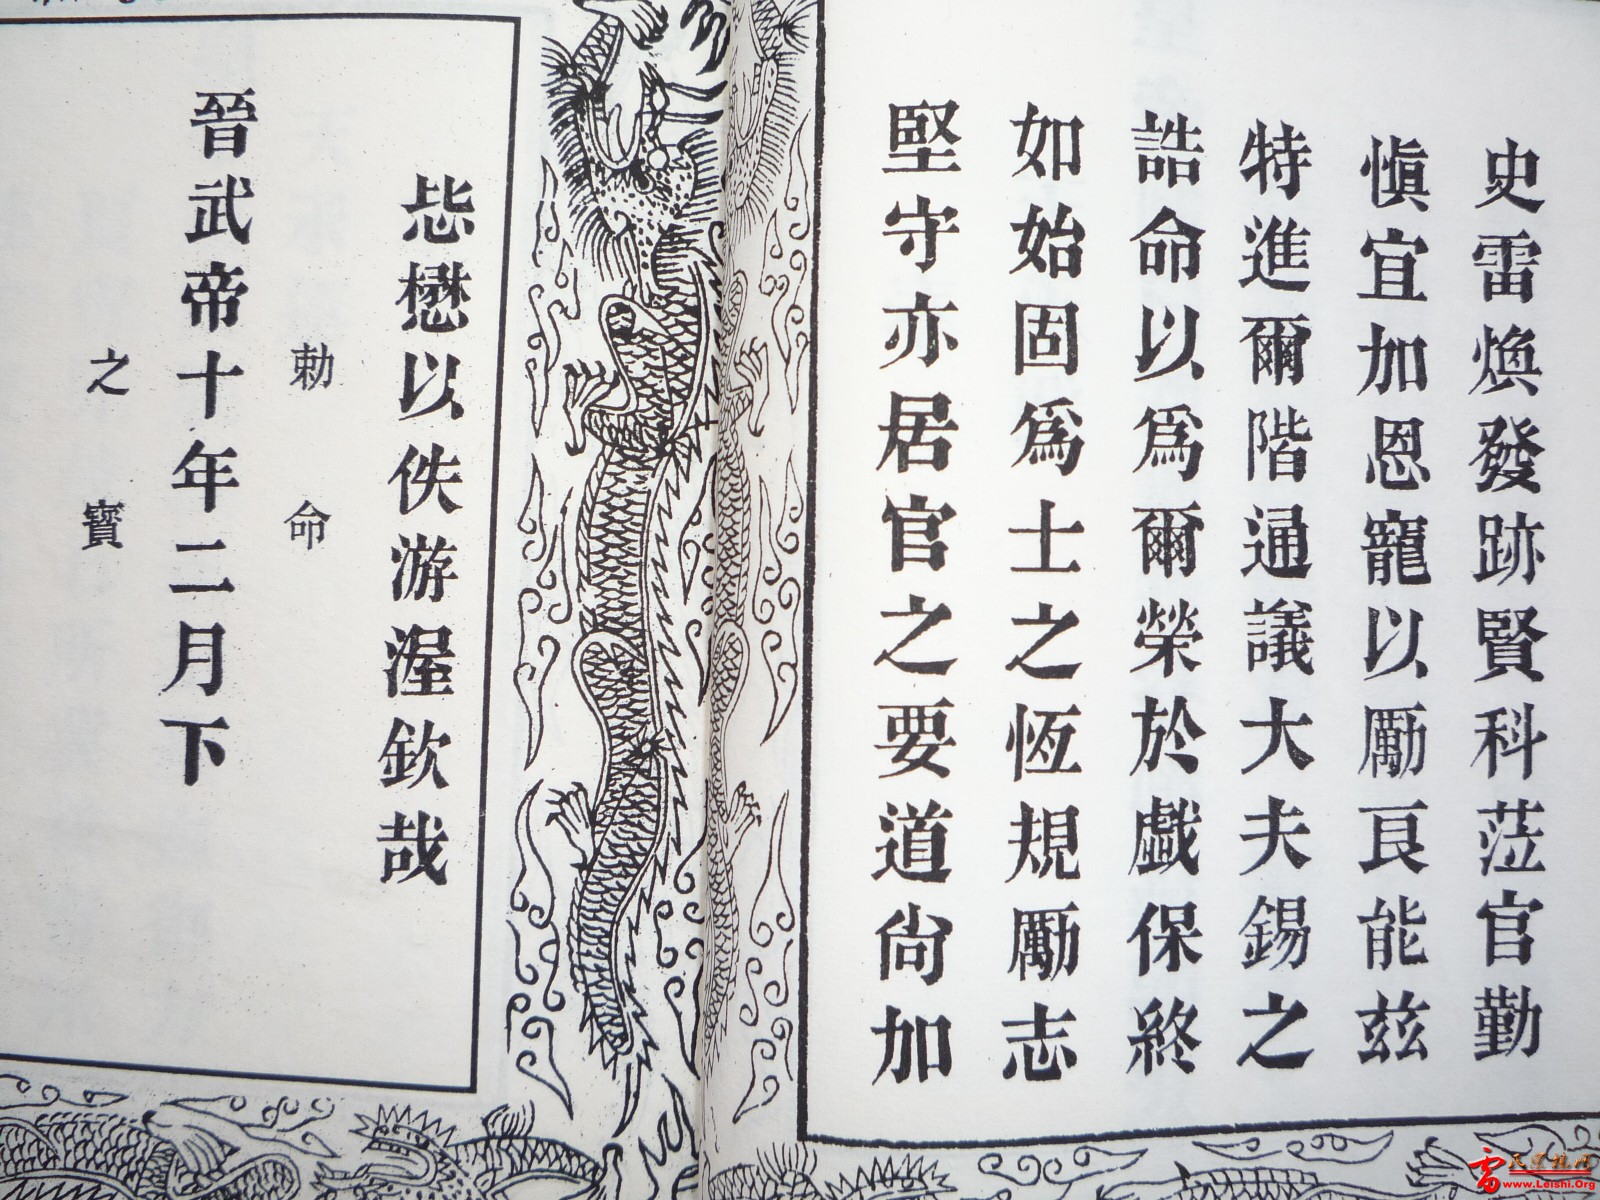 史雷煥發跡賢科蒞官勤
慎宜加恩寵以勵良能茲
特進爾階通議大夫錫之
誥命以為爾榮於戲保終
如始固為士之恆規勵志
堅守亦居官之要道尚加
毖懋以佚游渥欽哉
勅命
晉武帝十年二月下
之寶
www.Leishi.Org